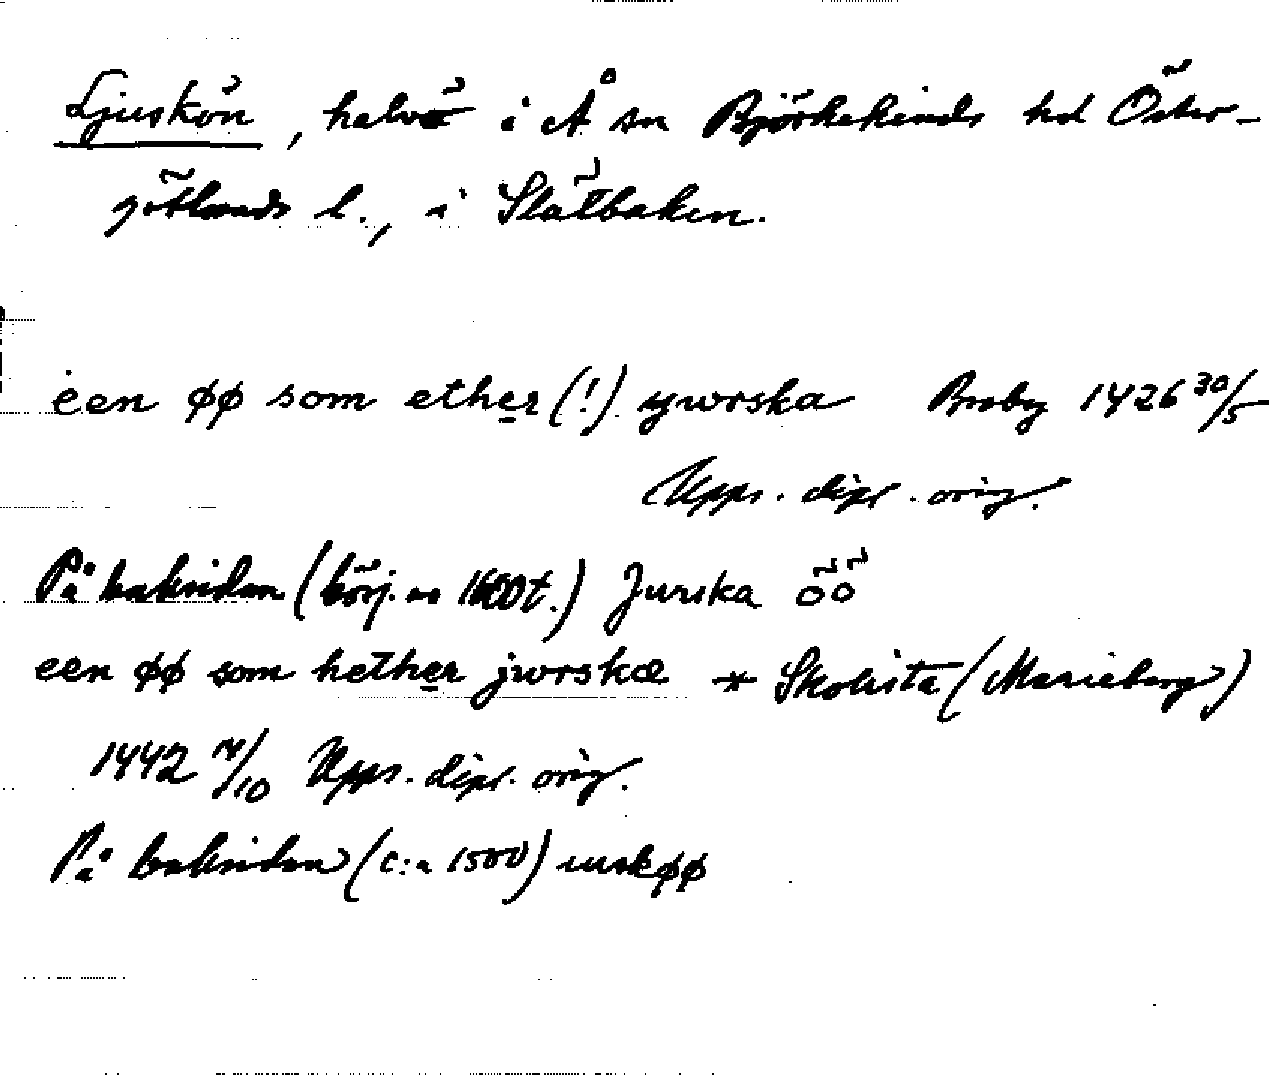 Ljuskön, halvö i Å sn Björkekinds hd Öster-
götlands l., i Slätbaken.
een øø som ether (!) ywrska Broby 1426 30/5
Upps. dipl. orig.
På baksidan (börj. av 1600t.) Jurska öö
een øø som hether jwrskæ * Skolsta (Marieberg)
1442 14/10 Upps. dipl. orig.
På baksidan (c:a 1500) iurskøø